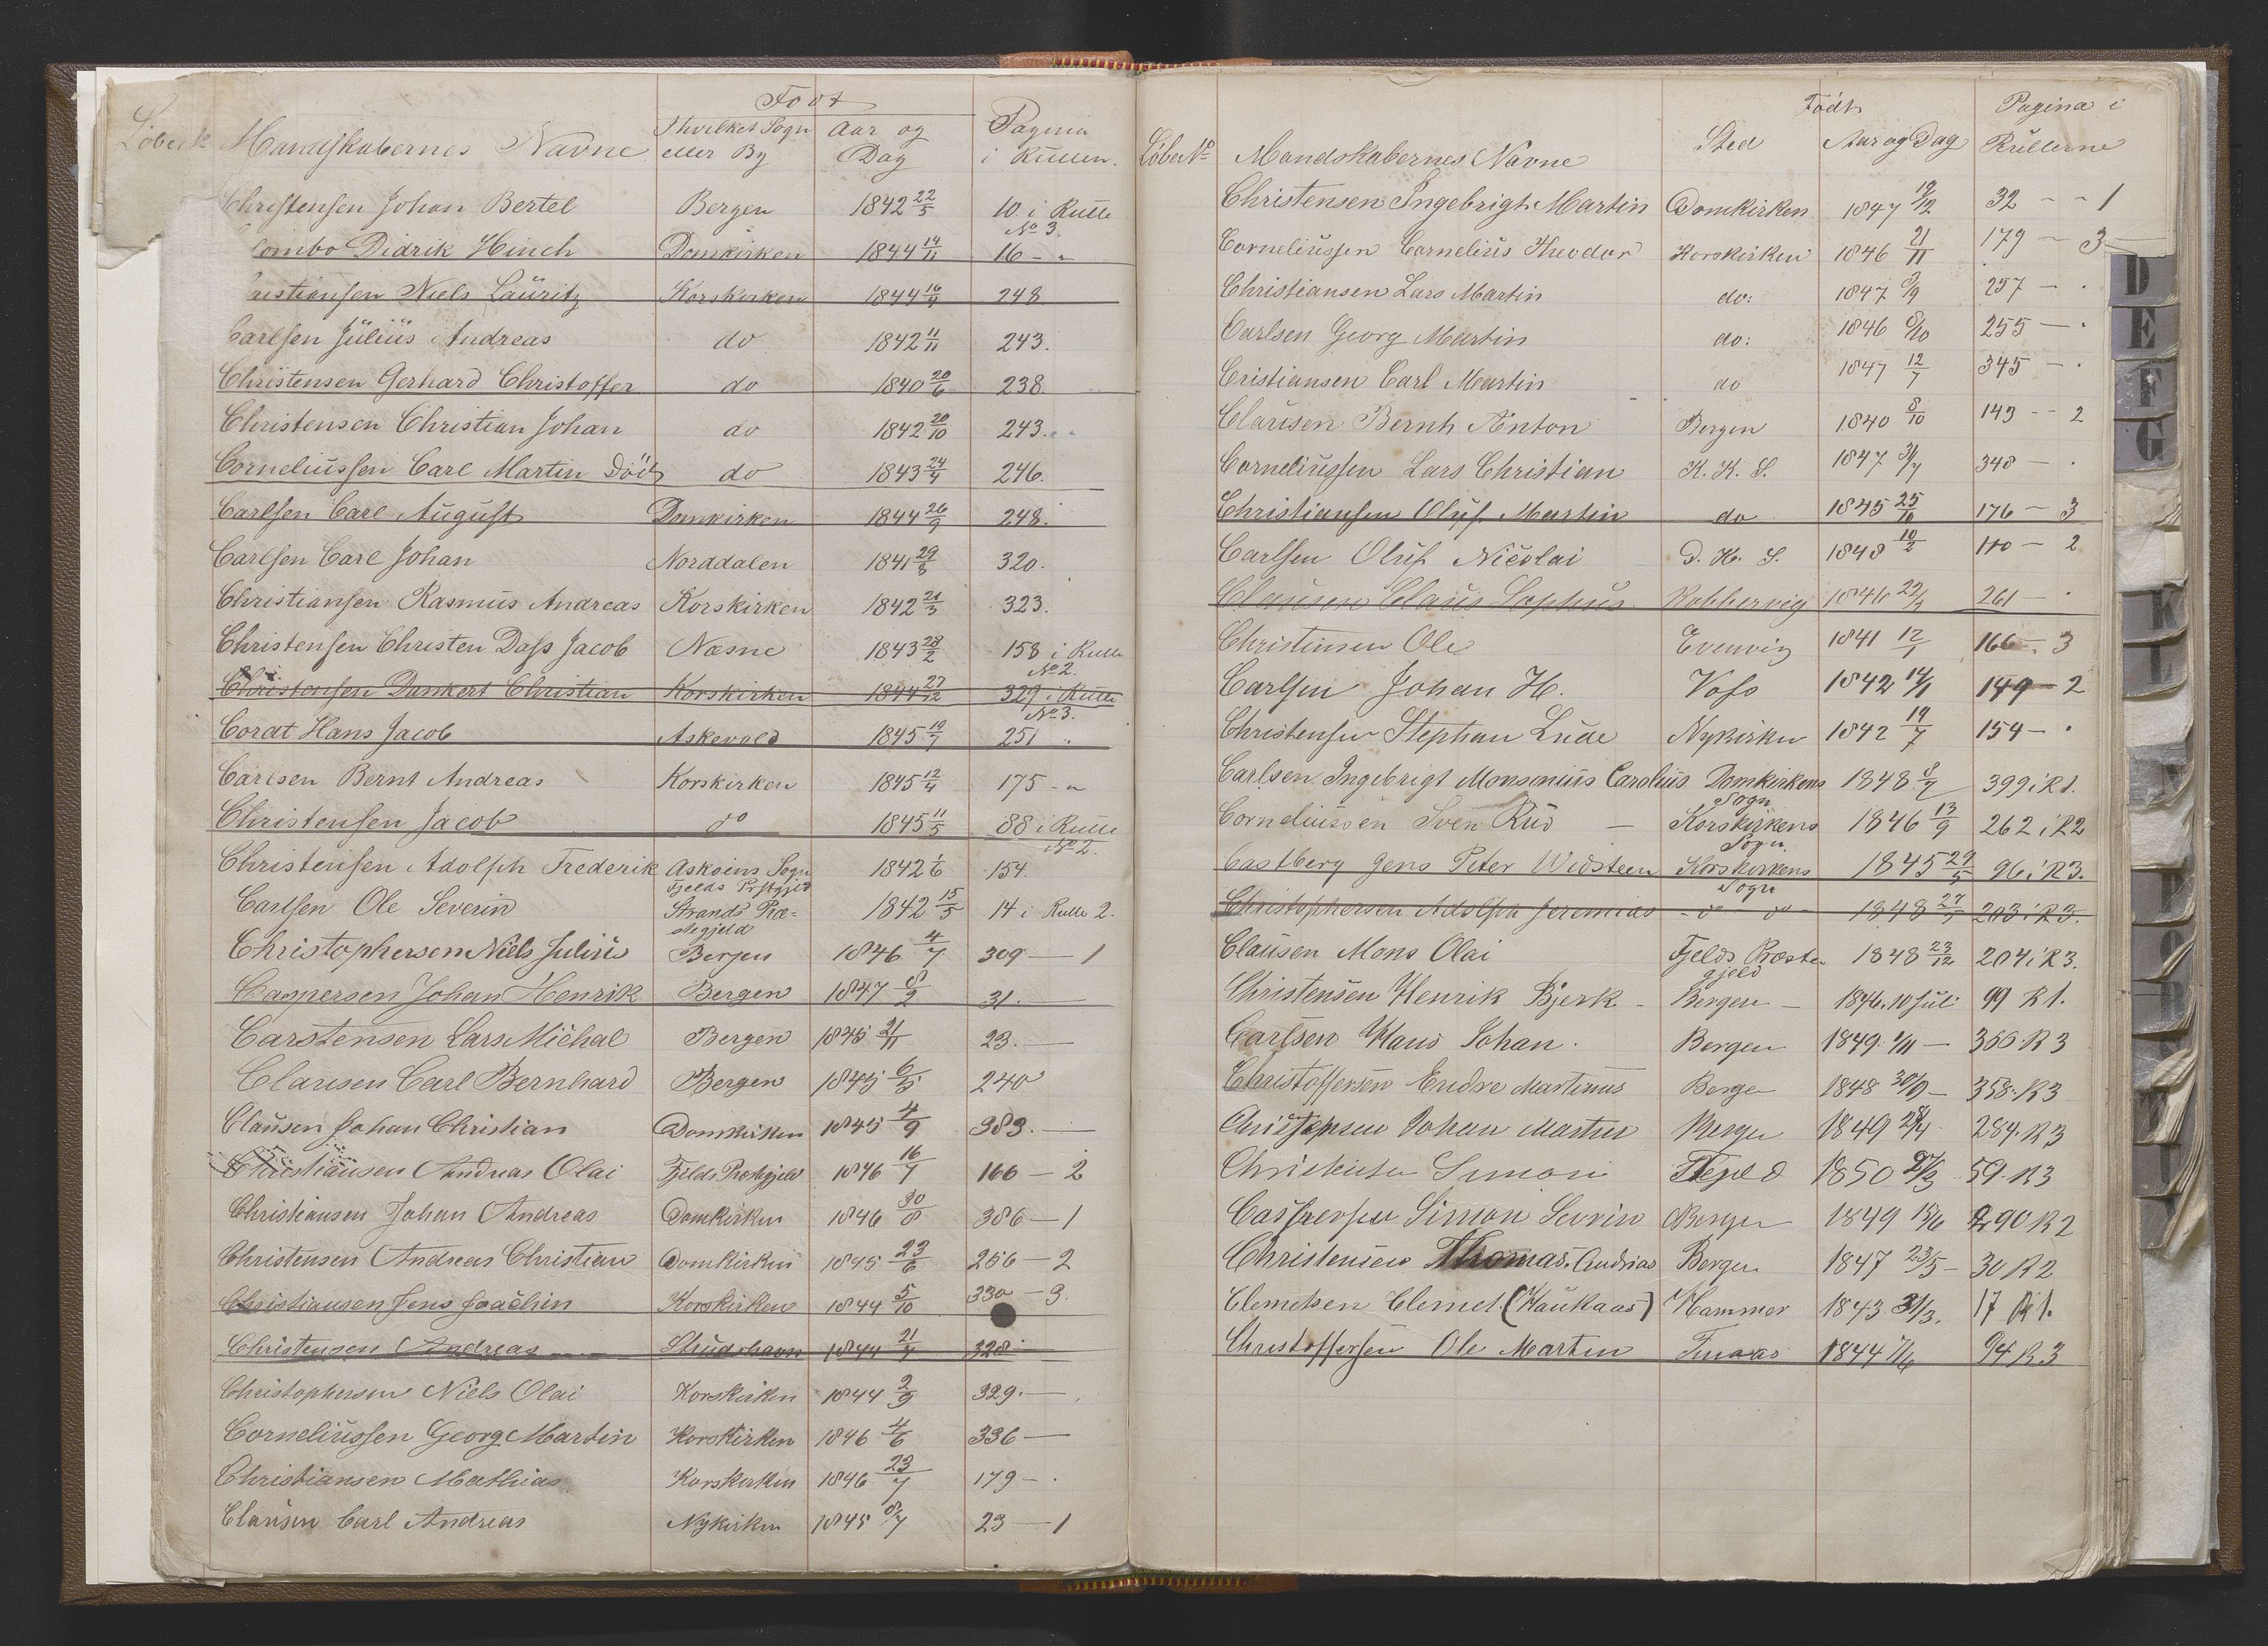 Født
Mandskabernes Navne I hvilket Sogn eller By Aar og Dag Pagina i Rullen.
Christensen Johan Bertel Bergen 1842 22/5 10 i Rulle No 3.
ombo Didrik Hinch Domkirken 1844 14/11 16 - "
istiansen Niels Lauritz Korskirken 1844 248
Carlsen Julius Andreas do 1842 11/11 243.
Christensen Gerhard Christoffer do 1840 20/6 238.
Christensen Christian Johan do 1842 20/10 243.
Corneliussen Carl Martin Död do 1843 24/4 246.
Carlsen Carl August Domkirken 1844 26/9 248.
Carlsen Carl Johan Norddalen 1841 29/8 320.
Christiansen Rasmus Andreas Korskirken 1842 21/3 323.
Christensen Christen Dass Jacob Næsne 1843 28/2 158 i Rulle No 2.
Christensen Dankert Christian Korskirken 1844 27/12 329 i Rulle No 3.
Cordt Hans Jacob Askevold 1845 19/7 251 "
Carlsen Bernt Andreas Korskirken 1845 12/4 175 - "
Christensen Jacob do 1845 11/5 88 i Rulle No 2.
Christensen Adolph Frederik Askøens Sogn Fjelds Prstgjld 1842 1/6 154.
Carlsen Ole Severin Strands Præstegjeld 1842 15/5 14 i Rulle 2.
Christophersen Niels Julius Bergen 1846 4/7 309 — 1
Caspersen Johan Henrik Bergen 1847 8/2 31. —
Carstensen Lars Michal Bergen 1845 21/11 23. —
Clausen Carl Bernhard Bergen 1845 6/5 240
Clausen Johan Christian Domkirken 1845 4/9 383. —
Christiansen Andreas Olai Fjelds Prostgjeld 1846 16/7 166 — 2
Christiansen Johan Andreas Domkirken 1846 30/8 386 — 1
Christensen Andreas Christian Domkirken 1845 23/6 256 — 2
Christiansen Jens Joachin Korskirken 1844 5/10 330 — 3.
Christensen Andreas Studshavn 1844 21/7 328
Christophersen Niels Olai Korskirken 1844 2/9 329. —
Corneliussen Georg Martin Korskirken 1846 4/6 336 —
Christiansen Mathias Korskirken 1846 23/7 179 — .
Clausen Carl Andreas Nykirken 1845 8/7 23 — 1
Födt Pagina i
LöbeNo Mandskabernes Navne Sted Aar og Dag Rullerne
Christensen Ingebrigt Martin Domkirken 1847 19/12 32 - - 1
Corneliussen Cornelius Theodor Korskirken 1846 21/11 179 — 3
Christiansen Lars Martin do: 1847 3/9 257 — .
Carlsen Georg Martin do: 1846 8/10 255 — .
Cristiansen Carl Martin do 1847 12/7 345 — .
Clausen Bernh Anton Bergen 1840 8/10 143 - - 2
Corneliussen Lars Christian K. K. S. 1847 31/7 348 — .
Christiansen Oluf Martin do 1845 25/10 176 — 3
Carlsen Oluf Nicolai D. K. S. 1848 10/2 180 — 2
Clausen Claus Sophus Kobbervig 1846 261 — .
Christensen Ole Evenvig 1841 12/1 166 - 3
Carlsen Johan H. Voss 1842 14/1 149 — 2
Christensen Stephan Lude Nykirken 1842 19/7 154 — .
Carlsen Ingebrigt Monsenius Carolius Domkirkens Sogn 1848 399 i R 1.
Corneliussen Sven Rud — Korskirkens Sogn. 1846 13/9 262 i R2
Castberg Jens Peter Widsteen Korskirkens Sogn 1845 29/5 96 i R3.
Christophersen Adolph Jeremias - do do - 1848 203 i R3.
Clausen Mons Olai Fjelds Præstegjeld 1848 23/12 204 i R3.
Christensen Henrik Bjerk - Bergen — 1846. 10 Juli 99 R 1.
Carlsen Hans Johan. Bergen 1849. 1/11 — 366 R 3
Christoffersen Endre Martinus Berge 1848 30/9 — 358. R3
Johan Martin Bergen 1849 28/4 284. R3
Christensen Simon Fjeld 1850 27/3 59. R3
Caspersen Simon Sevrin Bergen 1849 18/6 290 R2
Christensen Thomas. Andrias Bergen 1847 23/5 — 30 R 2
Clemetsen Clemet. (Haukaas) Hammer 1843 31/3. 17 R 1.
Christoffersen Ole Martin 1844 94 R 3
D
E
F
G
K
L